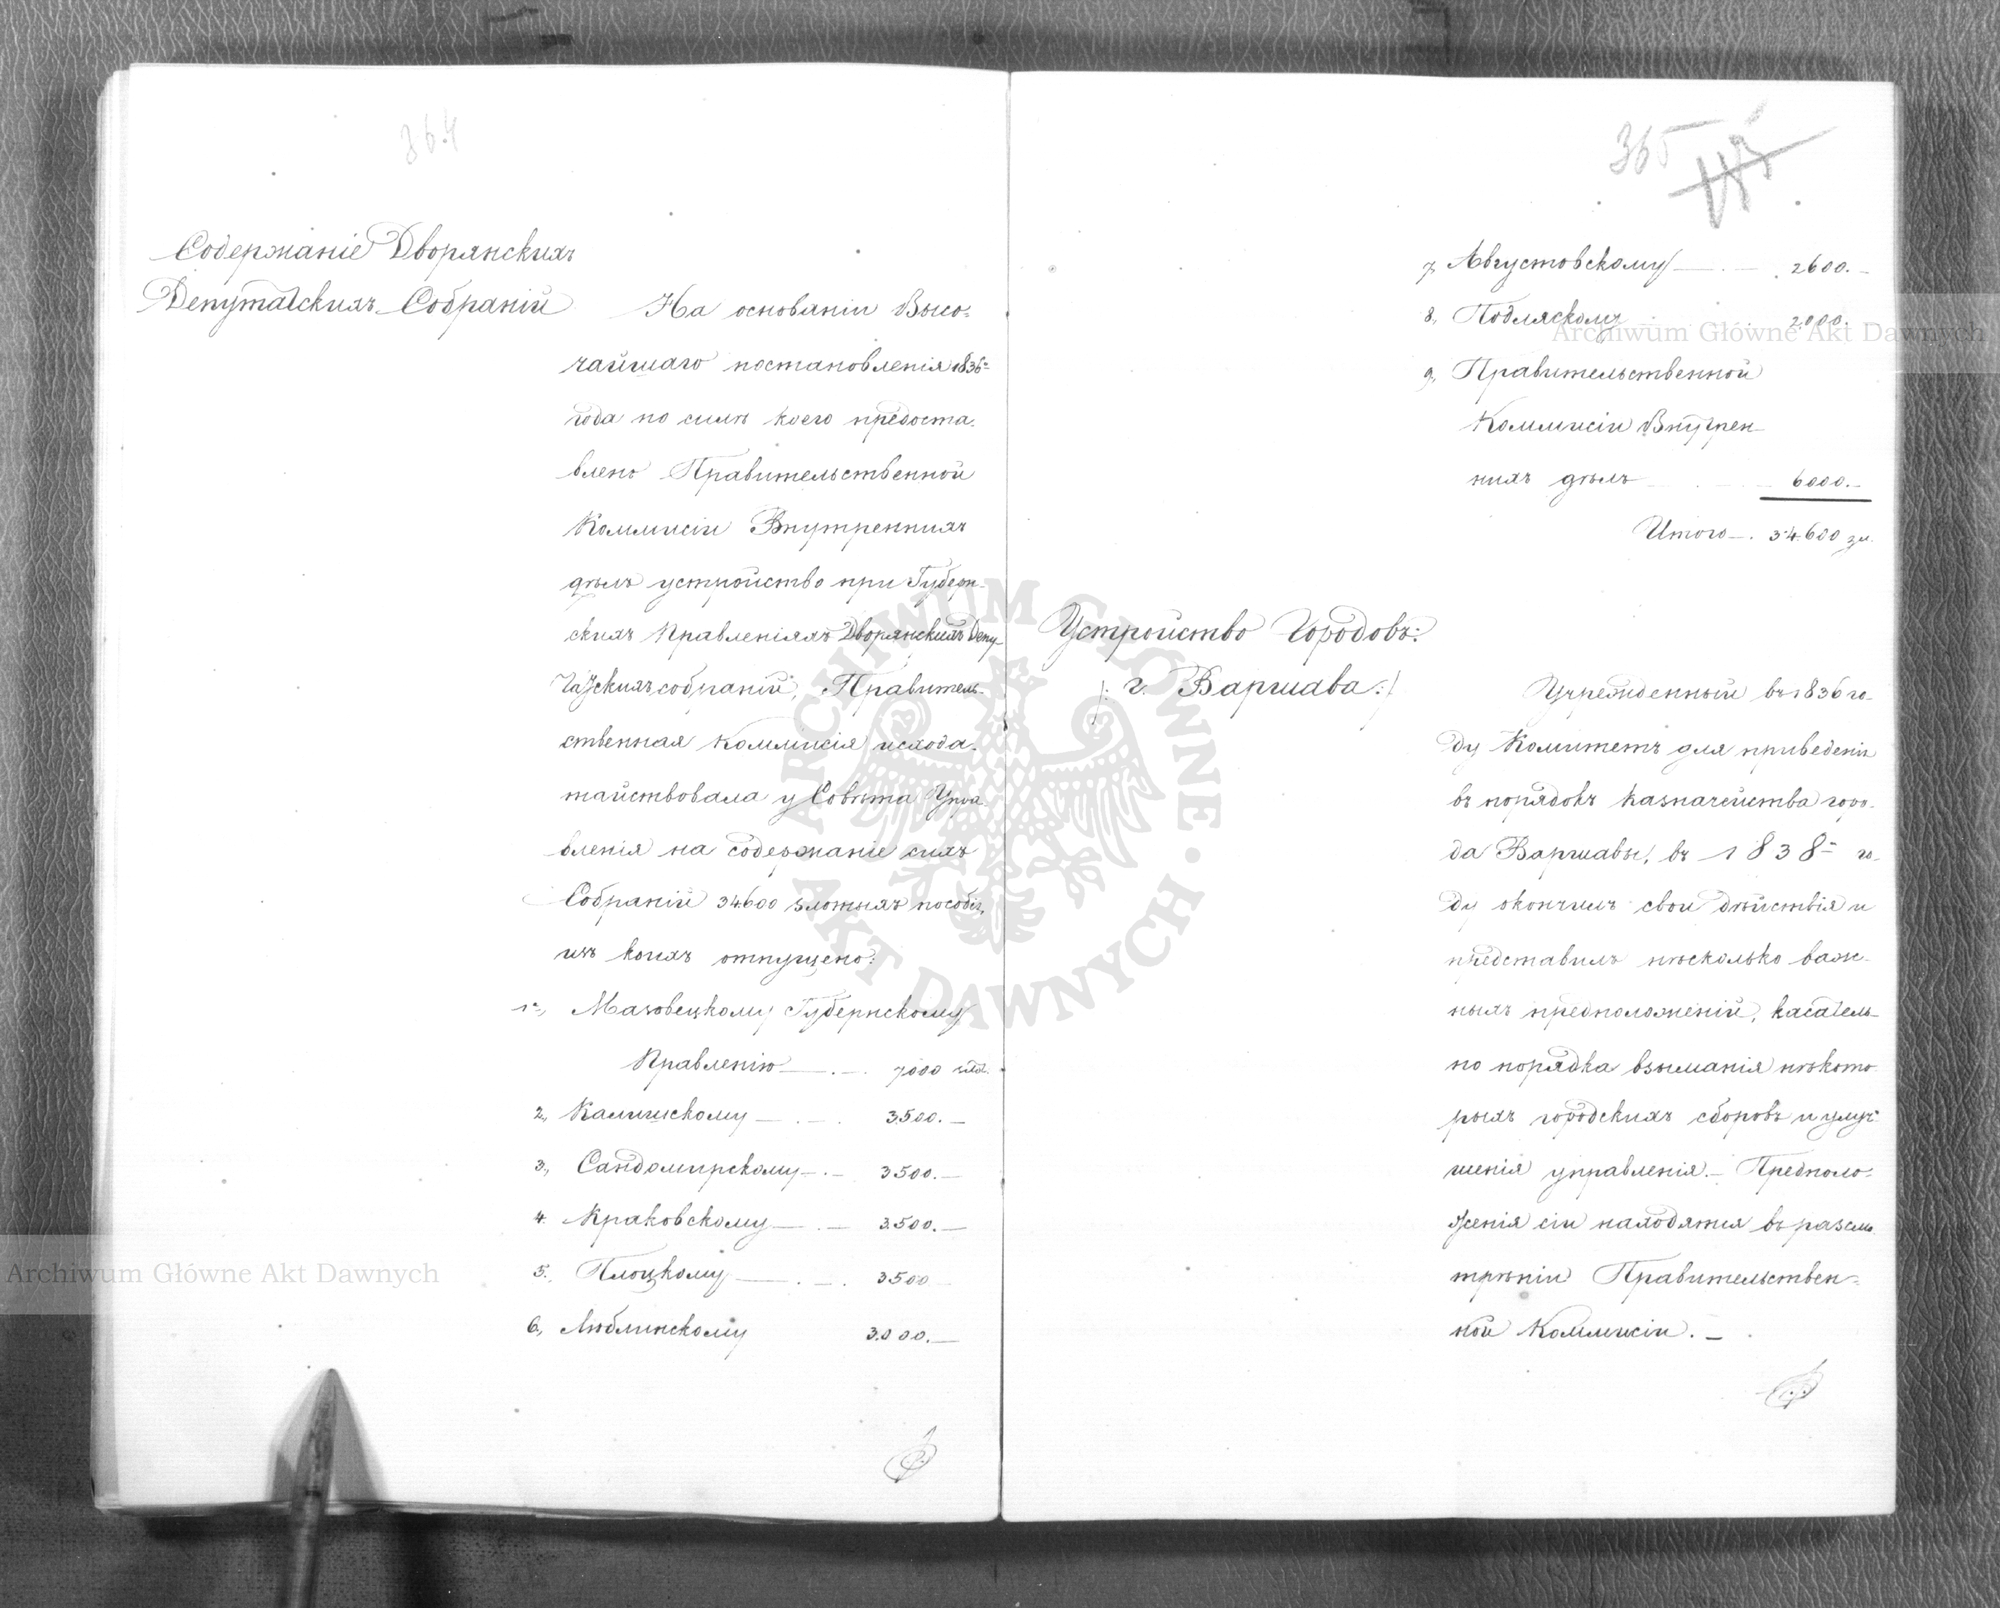 364
Содержаніе Дворянскихъ
Депутатскихъ Собраній
На основаніи Высо-
чайшаго постановленія 1836
года по силѣ коего предоста-
влено Правительственной
Коммисіи Внутреннихъ
дѣлъ устройство при Губерн-
скихъ Правленіяхъ Дворянскихъ Депу-
татскихъ собраній, Правитель-
ственная Коммисія исхода-
тайствовала у Совѣта Упра-
вленія на содержаніе сихъ
Собраній 34600 злотыхъ пособія,
изъ коихъ отпущено:
1., Мазовецкому Губернскому
Правленію — . — 7000 злот.
2., Калишскому — . — 3500. —
3., Сандомирскому — . — 3500. —
4. Краковскому — . — 3500. —
5., Плоцкому — . — 3500
6., Люблинскому 3000. —
365
7, Августовскому — . — 2600. —
8, Подляскому 2000.
9, Правительственной
Коммисіи Внутрен-
нихъ дѣлъ 6000. —
Итого — . 34600 зл.
Устройство Городовъ:
/: г. Варшава :/
Учрежденный въ 1836 го-
ду Комитетъ для приведенія
въ порядокъ казначейства горо-
да Варшавы, въ 1838 го-
ду окончилъ свои дѣйствія и
представилъ нѣсколько важ-
ныхъ предположеній, касатель-
но порядка взыманія нѣкото-
рыхъ городскихъ сборовъ и улуч-
шенія управленія. — Предполо-
женія сіи находятся въ разсмо-
трѣніи Правительствен-
ной Коммисіи. —
Archiwum Główne Akt Dawnych
Archiwum Główne Akt Dawnych
ARCHIWUM GŁÓWNE · AKT DAWNYCH ·